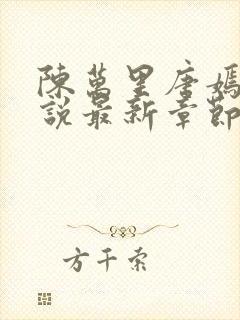 陳萬里唐嫣
說最新章節
方千索